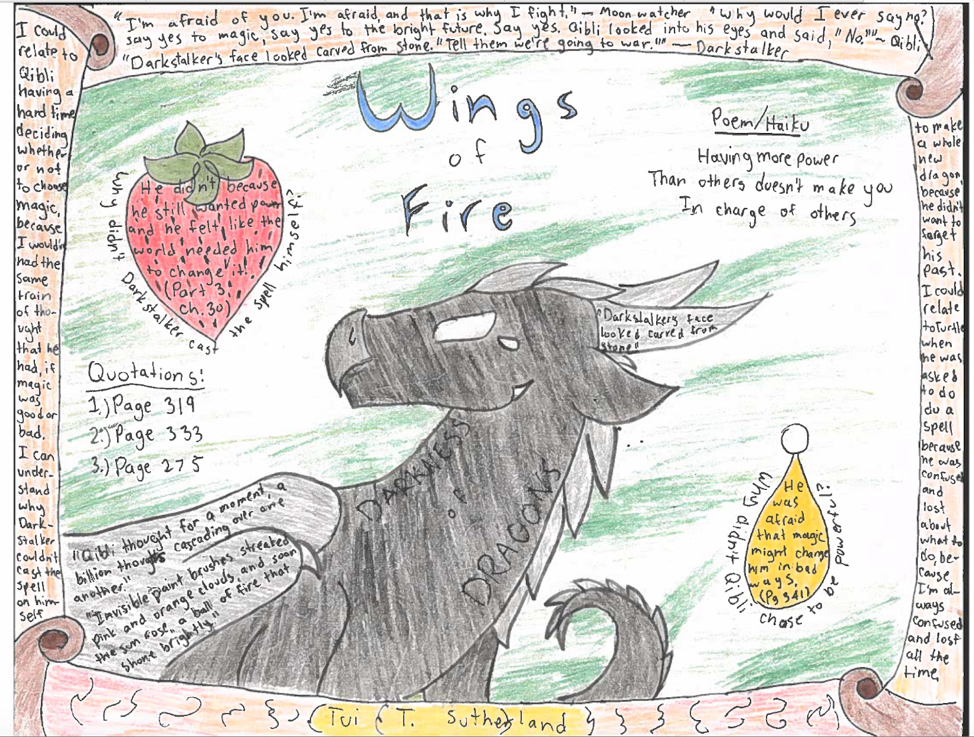 "I'm afraid of you. I'm afraid, and that is why I fight." — Moon watcher "Why would I ever say no?
say yes to magic, say yes to the bright future. Say yes. Qibli looked into his eyes and said, "No."" ~ Qibli
"Darkstalker's face looked carved from stone." "Tell them we're going to war."" — Darkstalker
I could
relate to
Qibli
having a
hard time
deciding
whether
or not
to choose
magic,
because
I would've
had the
same
train
of tho-
ught
that he
had, if
magic
was
good or
bad.
I can
under-
stand
why
Dark-
stalker
couldn't
cast the
spell
on him-
self
Wings
of
Fire
Poem/Haiku
Having more power
Than others doesn't make you
In charge of others
Why didn't Darkstalker cast the spell himself?
He didn't because
he still wanted power
and he felt like the
world needed him
to change it!
(Part 3,
Ch. 30)
Quotations:
1.) Page 319
2.) Page 333
3.) Page 275
"Darkstalkers face
looked carved from
stone"
DARKNESS
of
DRAGONS
"Qibli thought for a moment, a
billion thoughts cascading over one
another."
"Invisible paint brushes streaked
pink and orange clouds, and soon
the sun rose, a ball of fire that
shone brightly"
Why didn't Qibli chose to be a
He
was
afraid
that magic
might change
him in bad
ways.
(Pg 341)
to make
a whole
new
dragon,
because
he didn't
want to
forget
his
past.
I could
relate
to Turtle
when
he was
asked
to do
du a
spell
because
he was
confused
and
lost
about
what to
do, be-
cause
I'm al-
ways
confused
and lost
all the
time.
Tui T. Sutherland